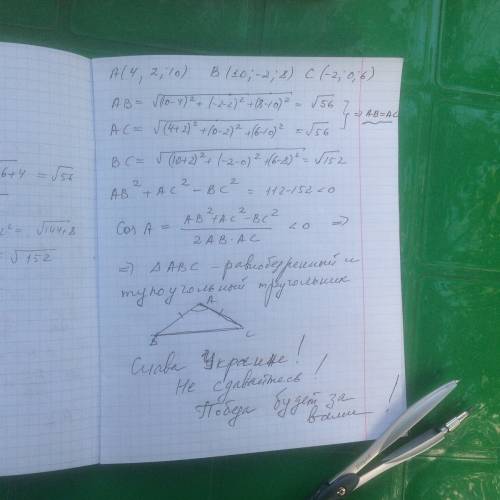 6+4 = √56
2² = √144+8
= √152
A(4, 2, 10) B(10; -2; 8) C(-2, 0, 6)
AB = √(10-4)² + (-2-2)² + (8-10)² = √56
AC = √(4+2)² + (0-2)² + (6-10)² = √56
} ⇒ AB=AC
BC = √(10+2)² + (-2-0)² + (6-8)² = √152
AB² + AC² - BC² = 112-152 < 0
Cos A = AB² + AC² - BC² / 2AB·AC < 0 ⇒
⇒ ΔABC - равнобедренный и
тупоугольный треугольник
A
B
C
Слава Украине!
Не сдавайтесь!
Победа будет за
вами!